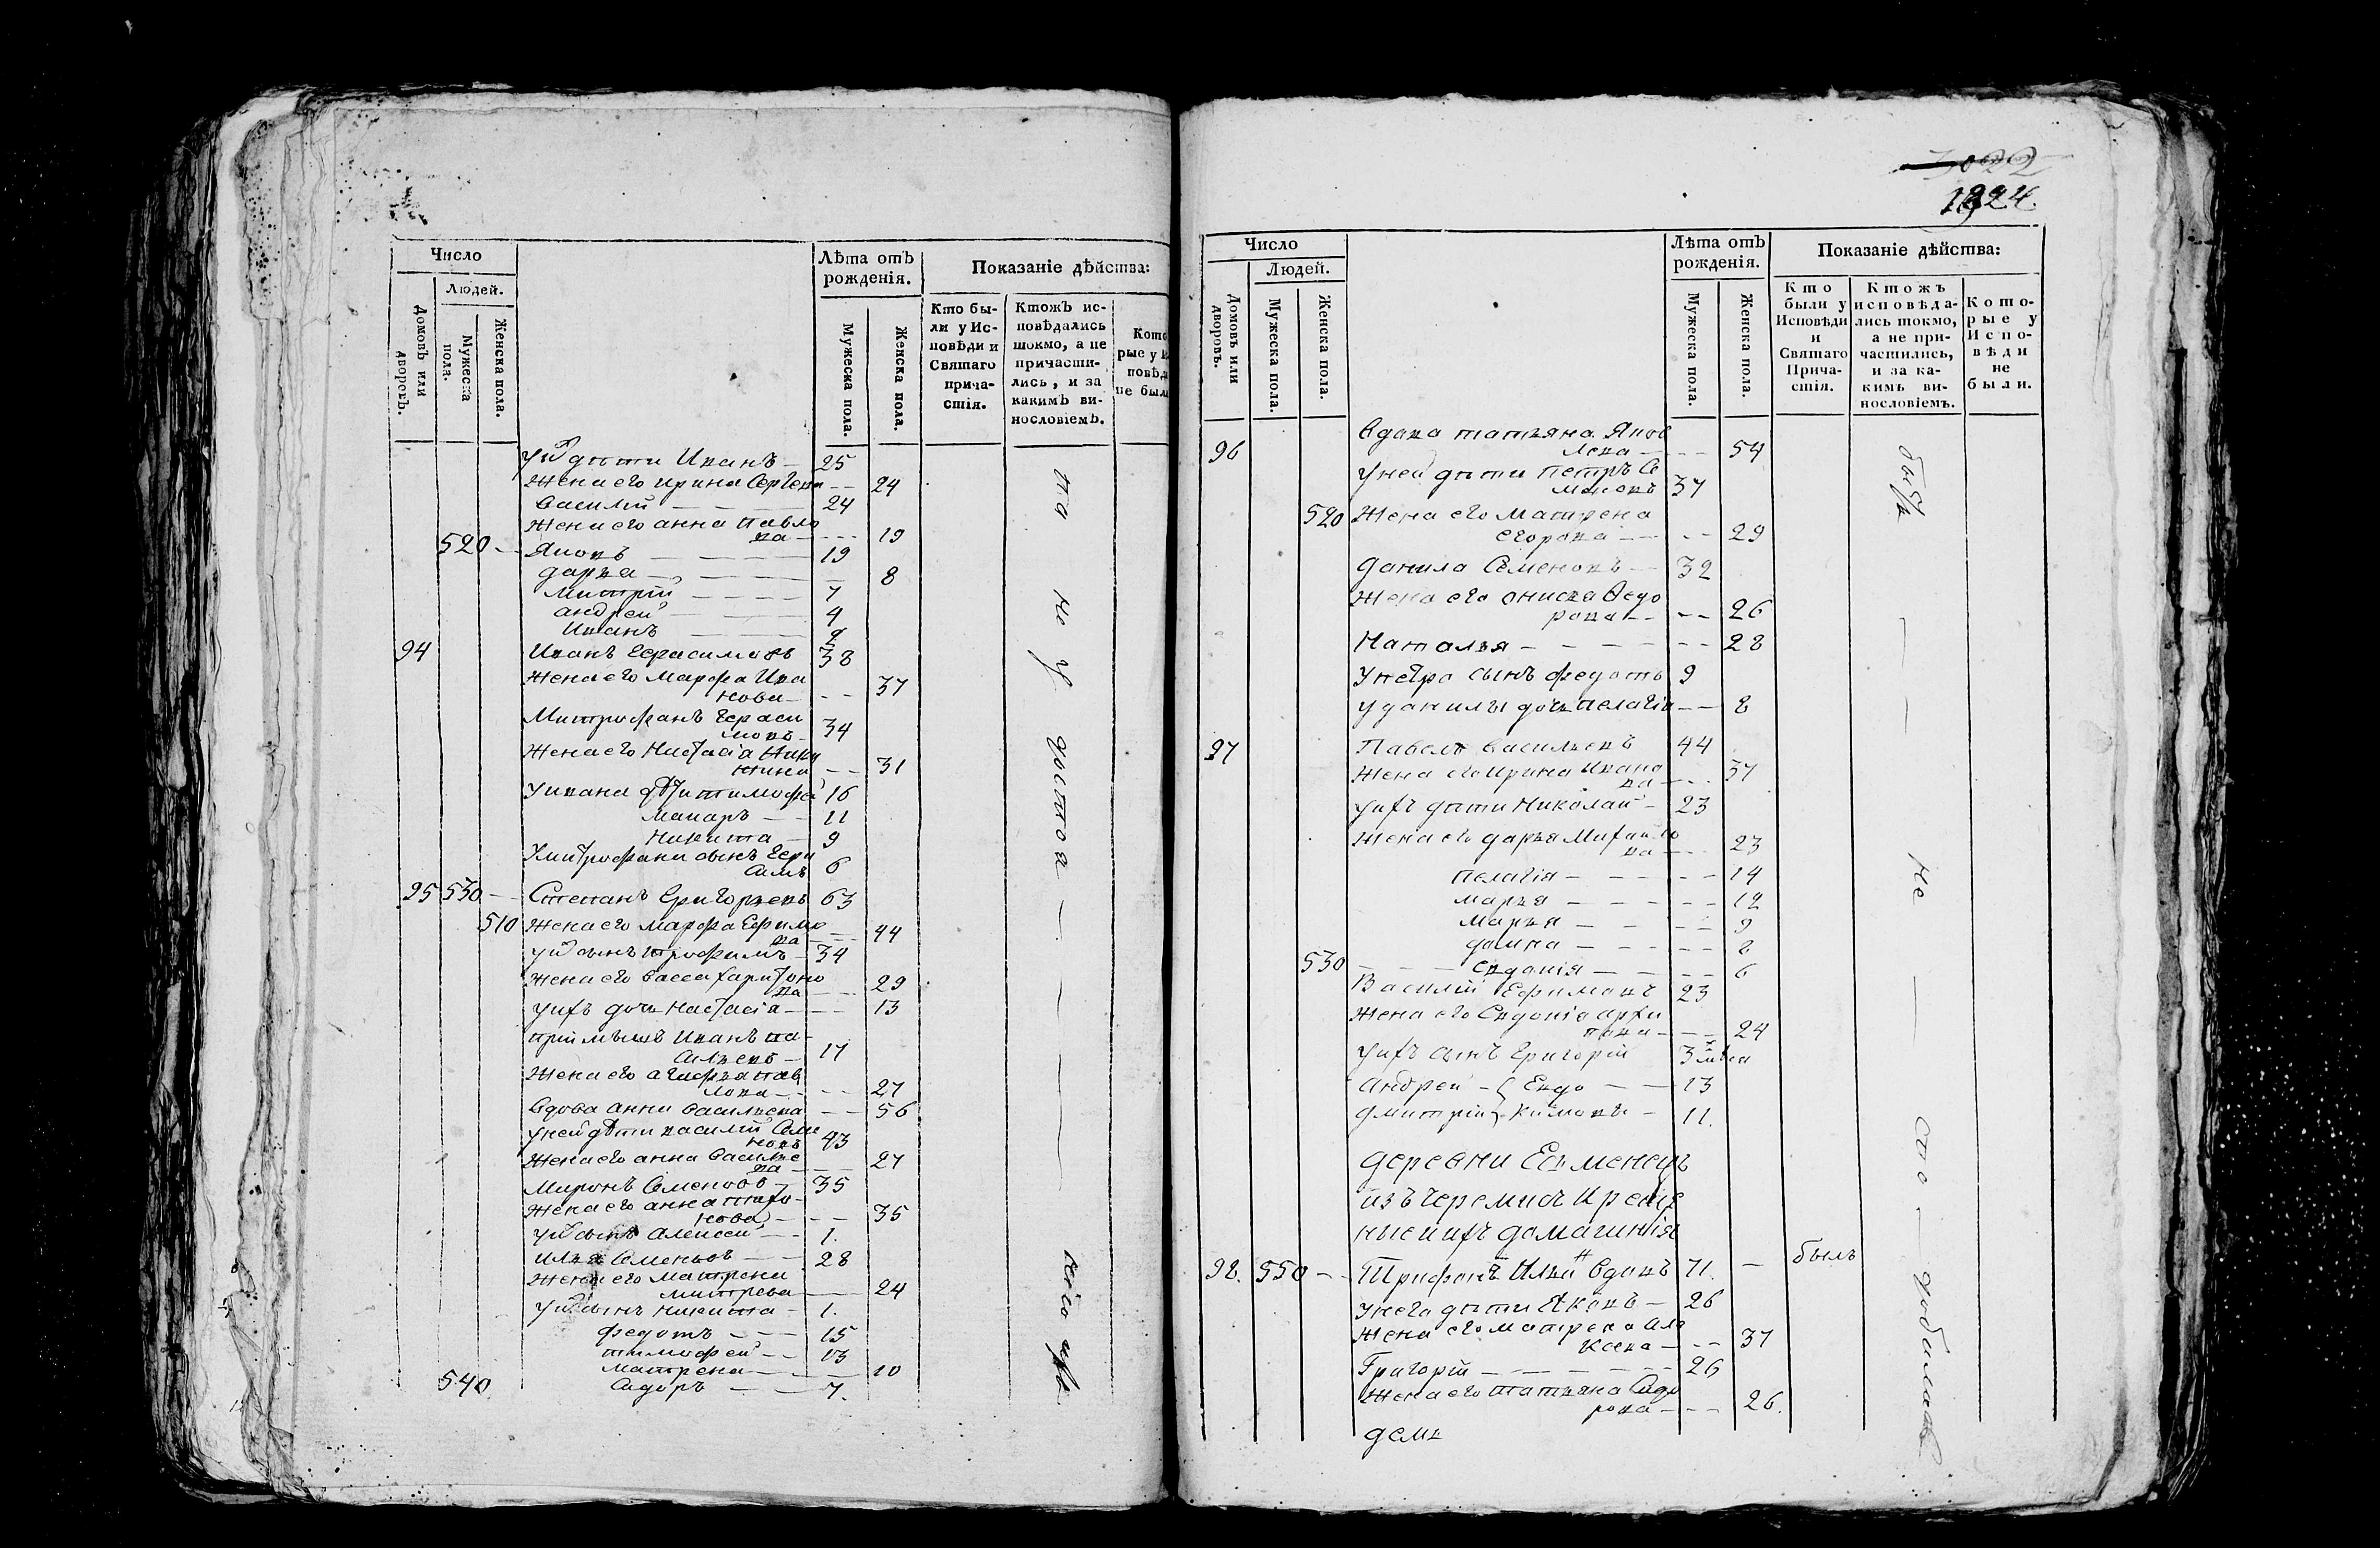 Число
Людей.
Домовъ или дворовъ.
Мужеска пола.
Женска пола.
Лѣта отъ рожденія.
Мужеска пола.
Женска пола.
Показаніе дѣйства:
Кто бы-
ли у Ис-
повѣди и
Святаго
прича-
стія.
Ктожъ ис-
повѣдались
шокмо, а не
причасти-
лись, и за
какимъ ви-
нословіемъ.
Кото
рые у И
повѣд
не были
дѣти Иванъ 25
жена его ирина Сергева 24
василий 24
жена его анна павло
ва 19
520 Яковъ 19
дарья 8
митрій 7
андрей 4
Иванъ 2
94 Иванъ Герасимовъ 38
жена его Марфа Ива
нова 37
Митрофанъ Гераси
мовъ 34
жена его Настасіа Ники
31
У ивана дѣти тимофей 16
макаръ 11
никита 9
Умитрофана сынъ Гера
симъ 6
95 530 Степанъ Григорьевъ 63
510 жена его Марфа Ефимо
ва 44
сынъ трофимъ 34
жена его васса харитоно
ва 29
уихъ дочь настасіа 13
Иванъ ва
сильевъ 17
жена его агафья пав
лова 27
вдова анна васильева 56
уней дѣти василий Семе
новъ 43
жена его анна василье
ва 27
Миронъ Семеновъ 35
жена его анна
нова 35
сынъ алексей 1.
илья Семеновъ 28
жена его матрена
митрева 24
сынъ никита 1.
федотъ 15
тимофей 13
матрена 10
540 Сидоръ 7.
1824.
Число
Людей.
Домовъ или дворовъ.
Мужеска пола.
Женска пола.
Лѣта отъ
рожденія.
Мужеска пола.
Женска пола.
Показаніе дѣйства:
Кто
были у
Исповѣди
и
Святаго
Прича-
стія.
Ктожъ
исповѣда-
лись токмо,
а не при-
частились,
и за ка-
кимъ ви-
нословіемъ.
Кото-
рые у
Испо-
вѣди
не
были.
96 вдова татьяна Яков
лева 54
уней дѣти петръ Се
меновъ 37
520 жена его матрена
егорова 29
данила Семеновъ 32
жена его Ѳедо
рова 26
Наталья 28
упетра сынъ федотъ 9
уданилы дочь пелагіа 8
97 Павелъ васильевъ 44
жена его ирина Ивано
ва 37
уихъ дѣти николай 23
жена его дарья Михайло
ва 23
пелагія 14
марья 12
марья 9
домна 8
530 евдокія 6
Василій Ефимовъ 23
жена его Евдокіа архи
пова 24
уихъ сынъ Григорій 3
андрей Евдо 13
дмитрій кимовы 11.
деревни
изъ черемисъ креще
ные и ихъ домашнія
98. 550 Трифонъ вдовъ 71. былъ
унего дѣти Яковъ 26
жена его матрена але
ксева 37
Григорій 26
жена его татьяна Сидо
рова 26.